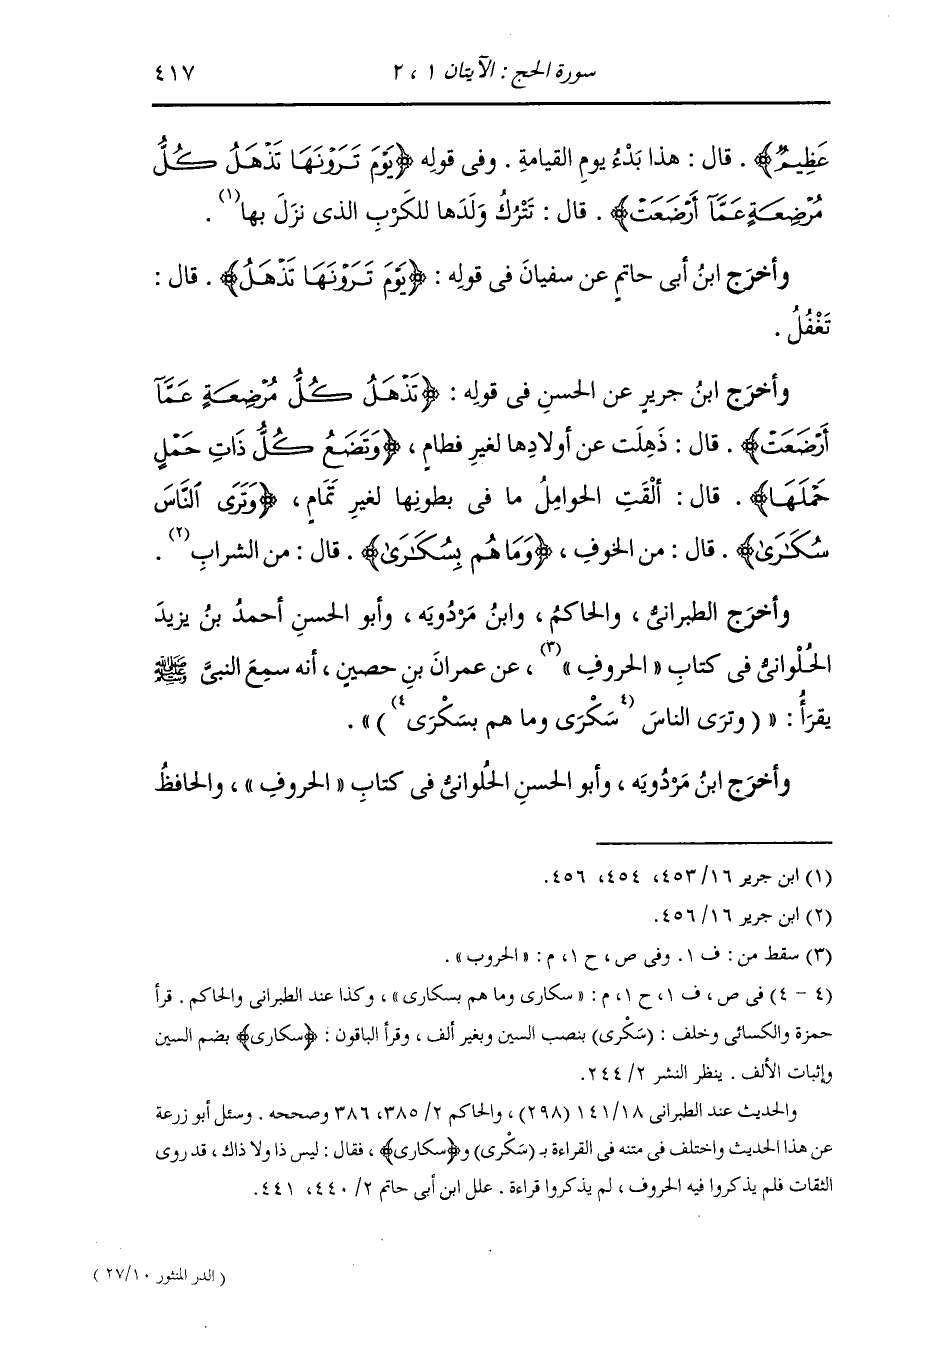 سورة الحج : الآيتان ١ ، ٢ ٤١٧
عَظِيمٌ﴾ . قال : هذا بَدْءُ يومِ القيامةِ . وفى قولِه ﴿يَوْمَ تَرَوْنَهَا تَذْهَلُ كُلُّ
مُرْضِعَةٍ عَمَّآ أَرْضَعَتْ﴾ . قال : تَتْرُكُ وَلَدَها للكَرْبِ الذى نزَلَ بها(١) .
وأخرَج ابنُ أبى حاتمٍ عن سفيانَ فى قولِه : ﴿يَوْمَ تَرَوْنَهَا تَذْهَلُ﴾ . قال :
تَغْفُلُ .
وأخرَج ابنُ جريرٍ عن الحسنِ فى قولِه : ﴿تَذْهَلُ كُلُّ مُرْضِعَةٍ عَمَّآ
أَرْضَعَتْ﴾ . قال : ذَهِلَت عن أولادِها لغيرِ فطامٍ ، ﴿وَتَضَعُ كُلُّ ذَاتِ حَمْلٍ
حَمْلَهَا﴾ . قال : ألْقَتِ الحواملُ ما فى بطونِها لغيرِ تَمَامٍ ، ﴿وَتَرَى ٱلنَّاسَ
سُكَٰرَىٰ﴾ . قال : من الخوفِ ، ﴿وَمَا هُم بِسُكَٰرَىٰ﴾ . قال : من الشرابِ(٢) .
وأخرَج الطبرانىُّ ، والحاكمُ ، وابنُ مَرْدُويَه ، وأبو الحسنِ أحمدُ بنُ يزيدَ
الحُلْوانىُّ فى كتابِ « الحروفِ »(٣) ، عن عمرانَ بنِ حصينٍ ، أنه سمِعَ النبىَّ ﷺ
يقرَأُ : « ( وترَى الناسَ (٤سَكْرَى وما هم بسَكْرَى٤) ) » .
وأخرَج ابنُ مَرْدُويَه ، وأبو الحسنِ الحُلوانىُّ فى كتابِ « الحروفِ » ، والحافظُ
(١) ابن جرير ١٦/ ٤٥٣، ٤٥٤، ٤٥٦.
(٢) ابن جرير ١٦/ ٤٥٦.
(٣) سقط من : ف ١. وفى ص ، ح ١، م : « الحروب » .
(٤ - ٤) فى ص ، ف ١، ح ١، م : « سكارى وما هم بسكارى » ، وكذا عند الطبرانى والحاكم . قرأ
حمزة والكسائى وخلف : (سَكْرى) بنصب السين وبغير ألف ، وقرأ الباقون : ﴿سكارى﴾ بضم السين
وإثبات الألف . ينظر النشر ٢/ ٢٤٤.
والحديث عند الطبرانى ١٤١/١٨ (٢٩٨) ، والحاكم ٢/ ٣٨٥، ٣٨٦ وصححه . وسئل أبو زرعة
عن هذا الحديث واختلف فى متنه فى القراءة بـ (سَكْرى) و﴿سكارى﴾ ، فقال : ليس ذا ولا ذاك ، قد روى
الثقات فلم يذكروا فيه الحروف ، لم يذكروا قراءة . علل ابن أبى حاتم ٢/ ٤٤٠، ٤٤١.
( الدر المنثور ٢٧/١٠ )